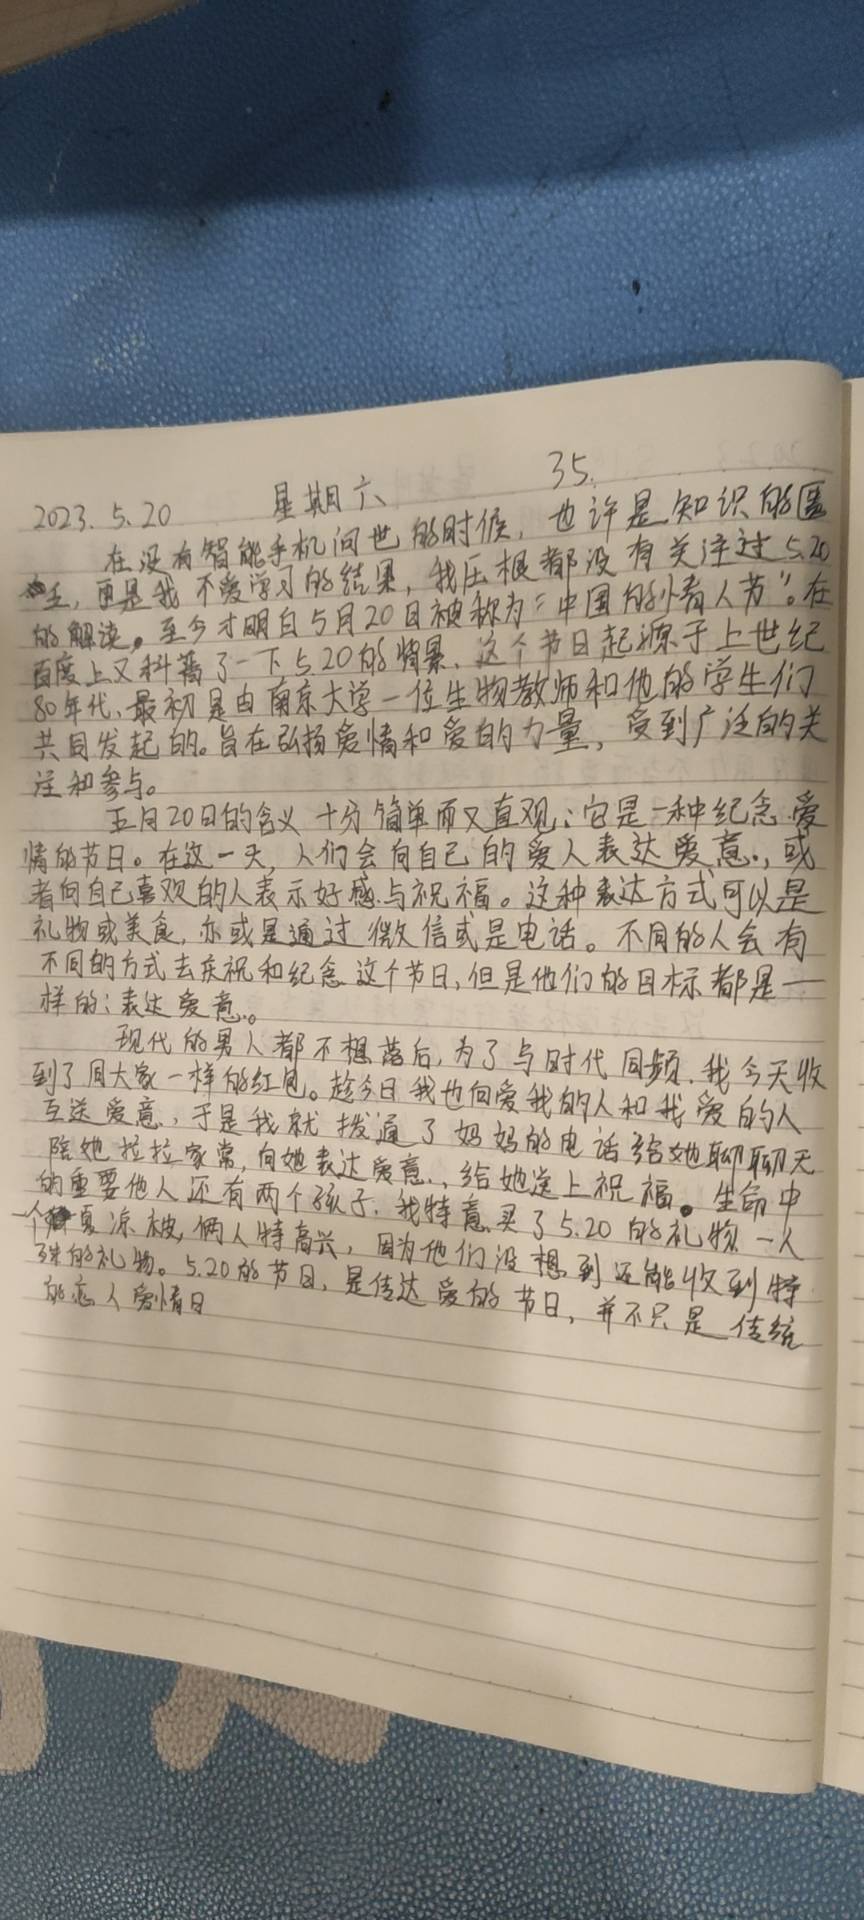 35.
2023.5.20 星期六
在没有智能手机问世的时候，也许是知识的匮
乏，更是我不爱学习的结果，我压根都没有关注过5.20
的解读。至今才明白5月20日被称为“中国的情人节”。在
百度上又科普了一下5.20的情景，这个节日起源于上世纪
80年代、最初是由南京大学一位生物教师和他的学生们
共同发起的。旨在弘扬爱情和爱的力量，受到广泛的关
注和参与。
五月20日的含义十分简单而又直观；它是一种纪念爱
情的节日。在这一天，人们会向自己的爱人表达爱意，或
者向自己喜观的人表示好感与祝福。这种表达方式可以是
礼物或美食，亦或是通过微信或是电话。不同的人会有
不同的方式去庆祝和纪念这个节日，但是他们的目标都是一
样的：表达爱意。
现代的男人都不想落后，为了与时代同频，我今天收
到了同大家一样的红包。趁今日我也向爱我的人和我爱的人
互送爱意，于是我就拨通了妈妈的电话给她聊聊天
陪她拉拉家常，向她表达爱意，给她送上祝福。生命中
的重要他人还有两个孩子，我特意买了5.20的礼物一人
一个夏凉被，俩人特高兴，因为他们没想到还能收到特
殊的礼物。5.20的节日，是传达爱的节日，并不只是传统
的恋人爱情日